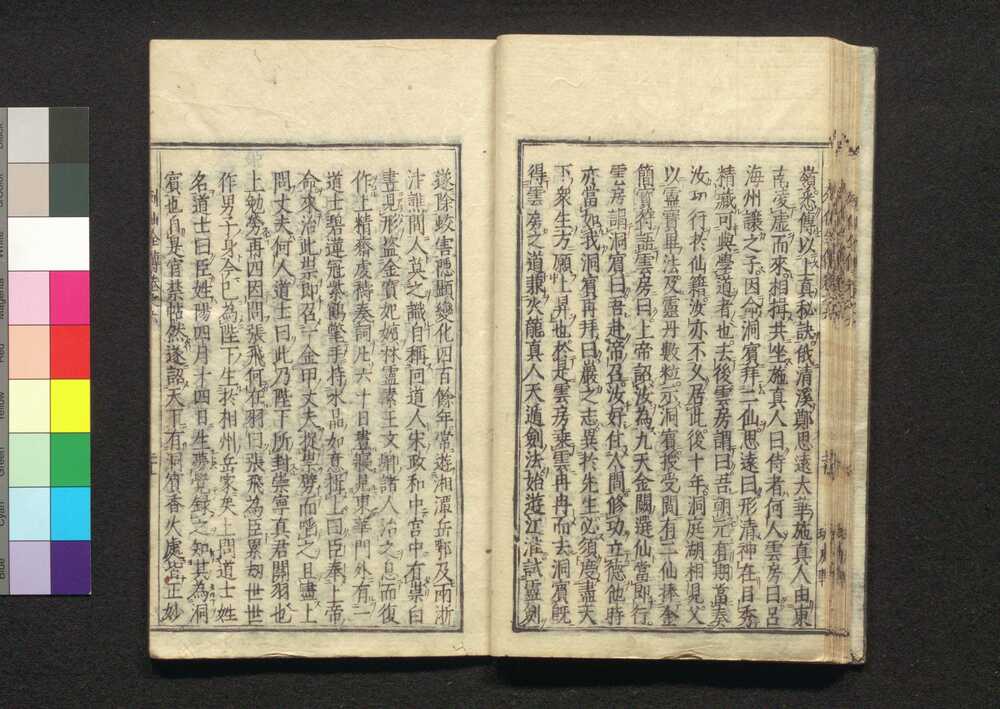 嶺悉傳以上真秘訣俄清溪鄭思遠太華施真人由東
南凌虛而來相揖共坐施真人曰侍者何人雲房曰呂
海州讓之子因命洞賓拜二仙思遠曰形清神在目秀
精藏可與學道者也去後雲房謂曰吾朝元有期當奏
汝功行於仙籍汝亦不久居此後十年洞庭湖相見又
以靈寶畢法及靈丹數粒示洞賓授受間有二仙捧金
簡寶符語雲房曰上帝詔汝為九天金闕選仙當即行
雲房謂洞賓曰吾赴帝召汝好住人間修功立德他時
亦當如我洞賓再拜曰嚴之志異於先生必須度盡天
下眾生方願上昇也於是雲房乘雲冉冉而去洞賓既
得雲房之道兼火龍真人天遁劍法始遊江淮試靈劍
遂除蛟害隱顯變化四百餘年常遊湘潭岳鄂及兩浙
汴譙間人莫之識自稱回道人宋政和中宮中有祟白
晝見形盜金寶妃嬪林靈素王文卿諸人治之息而復
作上精齋虔禱奏詞凡六十日晝寢見東華門外有一
道士碧蓮冠紫鶴氅手持水晶如意揖上曰臣奉上帝
命來治此祟即召一金甲丈夫捉祟劈而啗之且盡上
問丈夫何人道士曰此乃陛下所封崇寧真君關羽也
上勉勞再四因問張飛何在羽曰張飛為臣累劫世世
作男子身今已為陛下生於相州岳家矣上問道士姓
名道士曰臣姓陽四月十四日生夢覺錄之知其為洞
賓也自是宮禁帖然遂詔天下有洞賓香火處皆正妙